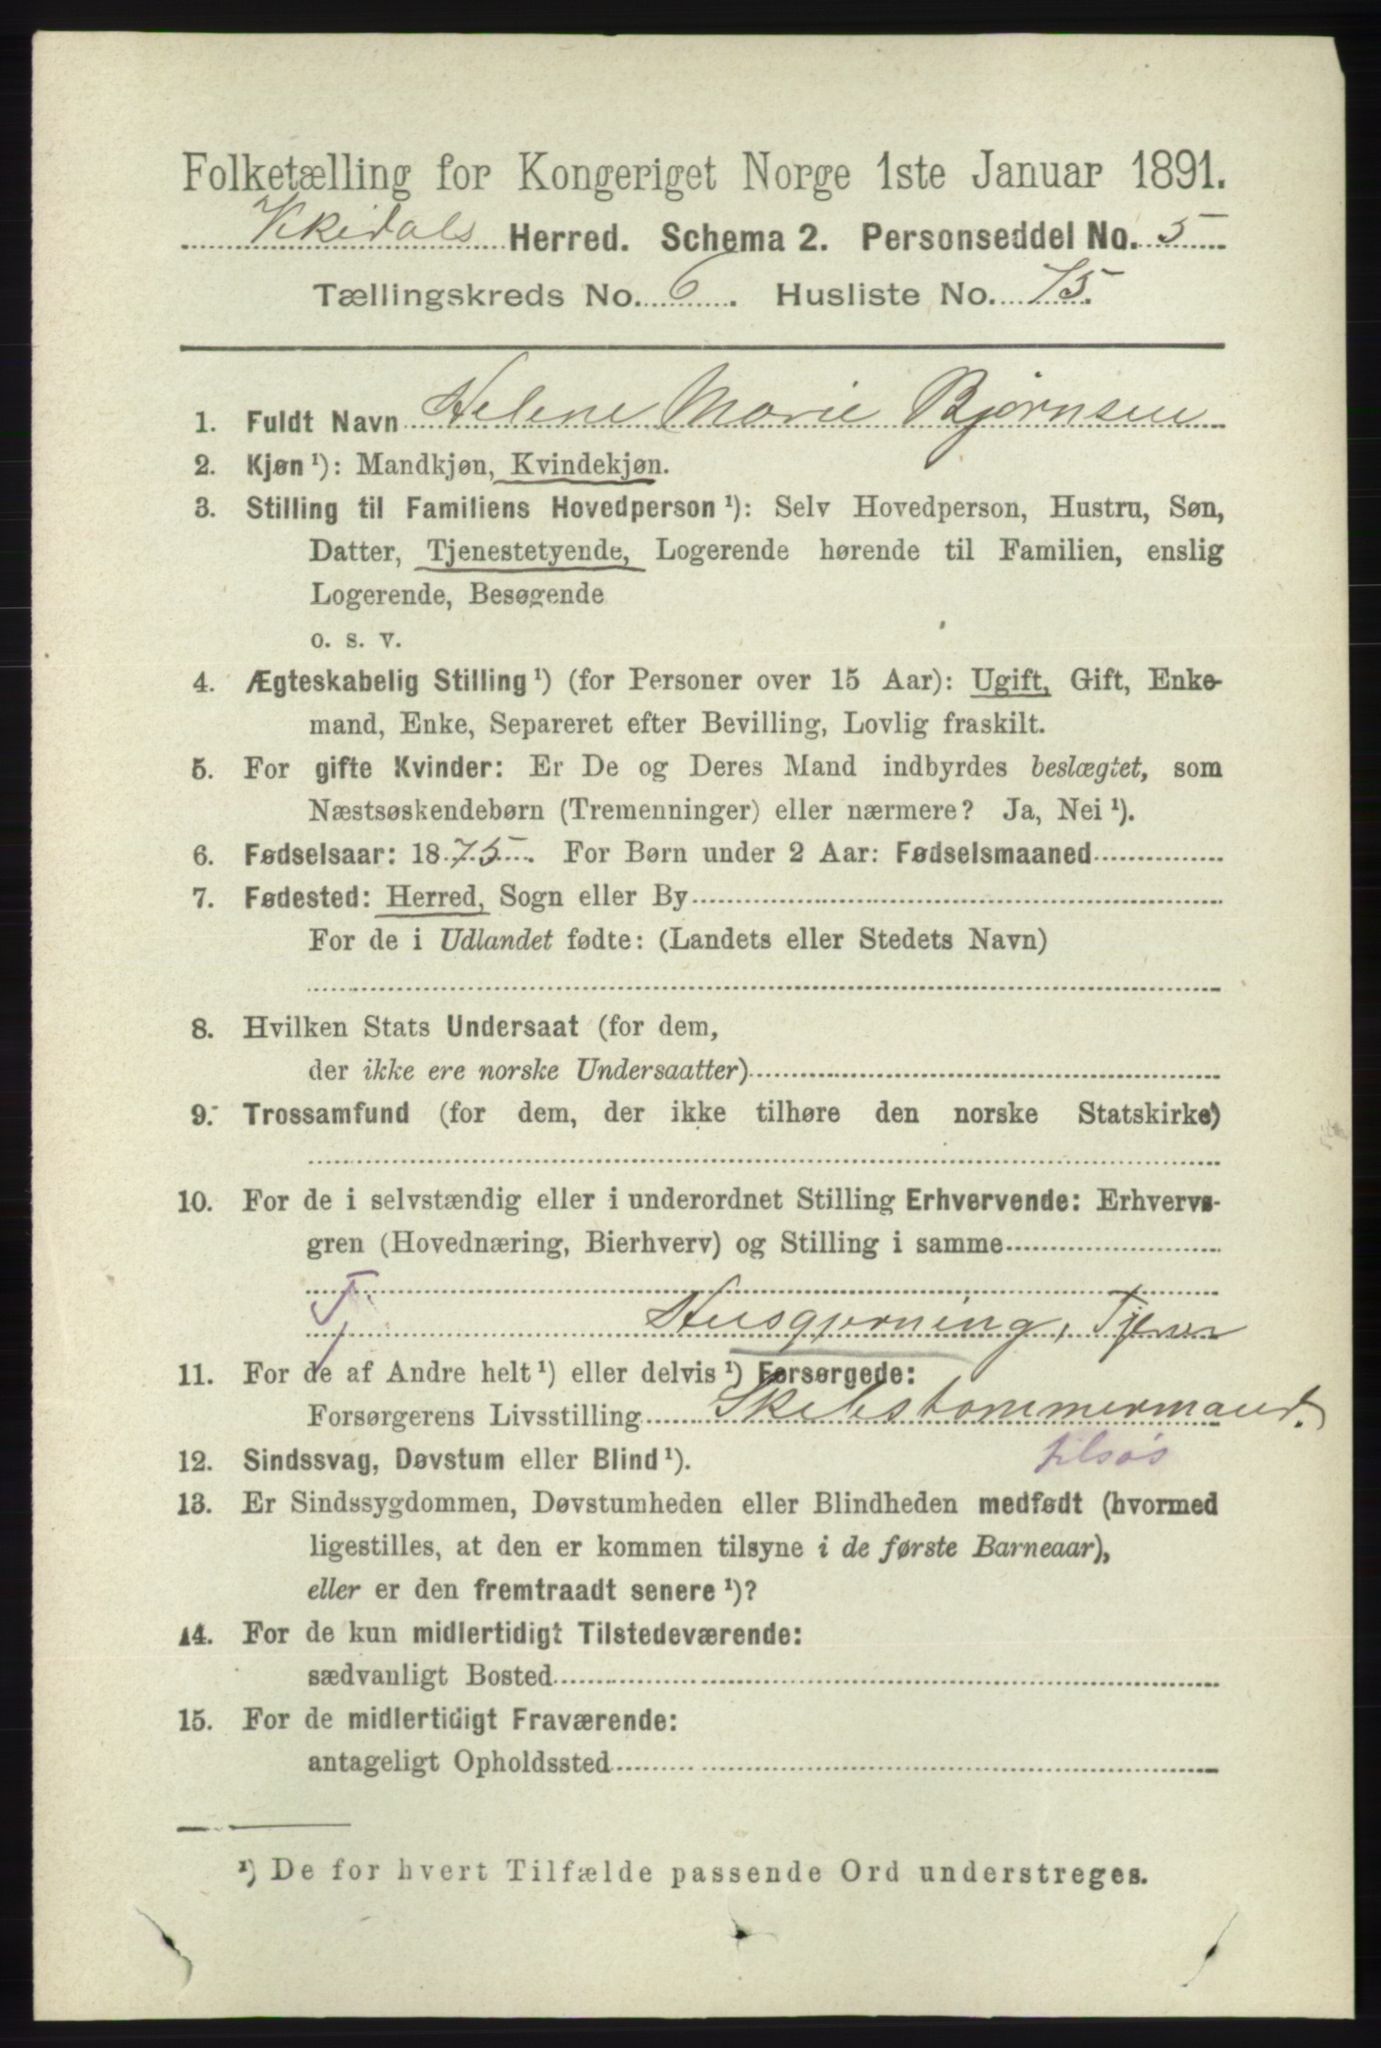 Folketælling for Kongeriget Norge 1ste Januar 1891.
Herred. Schema 2. Personseddel No. 5
Tællingskreds No. 6. Husliste No. 75.
1. Fuldt Navn Helene Marie Bjørnsen
2. Kjøn ¹): Mandkjøn, Kvindekjøn.
3. Stilling til Familiens Hovedperson ¹): Selv Hovedperson, Hustru, Søn,
Datter, Tjenestetyende, Logerende hørende til Familien, enslig
Logerende, Besøgende
o. s. v.
4. Ægteskabelig Stilling ¹) (for Personer over 15 Aar): Ugift, Gift, Enke-
mand, Enke, Separeret efter Bevilling, Lovlig fraskilt.
5. For gifte Kvinder: Er De og Deres Mand indbyrdes beslægtet, som
Næstsøskendebørn (Tremenninger) eller nærmere? Ja, Nei ¹).
6. Fødselsaar: 1875. For Børn under 2 Aar: Fødselsmaaned
7. Fødested: Herred, Sogn eller By
For de i Udlandet fødte: (Landets eller Stedets Navn)
8. Hvilken Stats Undersaat (for dem,
der ikke ere norske Undersaatter)
9. Trossamfund (for dem, der ikke tilhøre den norske Statskirke)
10. For de i selvstændig eller i underordnet Stilling Erhvervende: Erhvervs-
gren (Hovednæring, Bierhverv) og Stilling i samme
Tj Husgjerning, Tjener
11. For de af Andre helt ¹) eller delvis ¹) Forsørgede:
Forsørgerens Livsstilling Skibstømmermand.
12. Sindssvag, Døvstum eller Blind ¹). tilsøs
13. Er Sindssygdommen, Døvstumheden eller Blindheden medfødt (hvormed
ligestilles, at den er kommen tilsyne i de første Barneaar),
eller er den fremtraadt senere ¹)?
14. For de kun midlertidigt Tilstedeværende:
sædvanligt Bosted
15. For de midlertidigt Fraværende:
antageligt Opholdssted
¹) De for hvert Tilfælde passende Ord understreges.